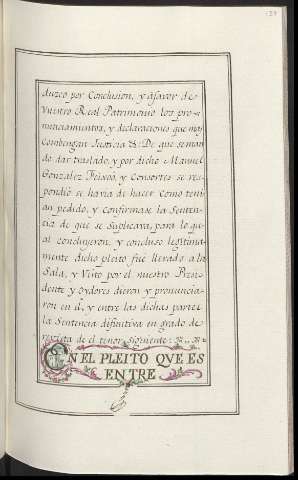 duzco por Conclusion, y âfavor de
Vuestro Real Patrimonio los pro-
nunciamientos, y declaraciones que mas
Combengan Justicia &ª De que se man
do dar traslado, y por dicho Manuel
Gonzalez Feixoô, y Consortes se res-
pondiô se havia de hacer Como tení-
an pedido, y confirmase la Senten-
cia de que se Suplicava, para lo qu
al concluyeron, y concluso legitima
mente dicho pleito fuê llevado a la
Sala, y Visto por el nuestro Presi-
dente y Oydores dieron y pronuncia-
ron en êl, y entre las dichas partes
la Sentencia difinitiva en grado de
revista de el tenor siguiente:
EN EL PLEITO QVE ES
ENTRE